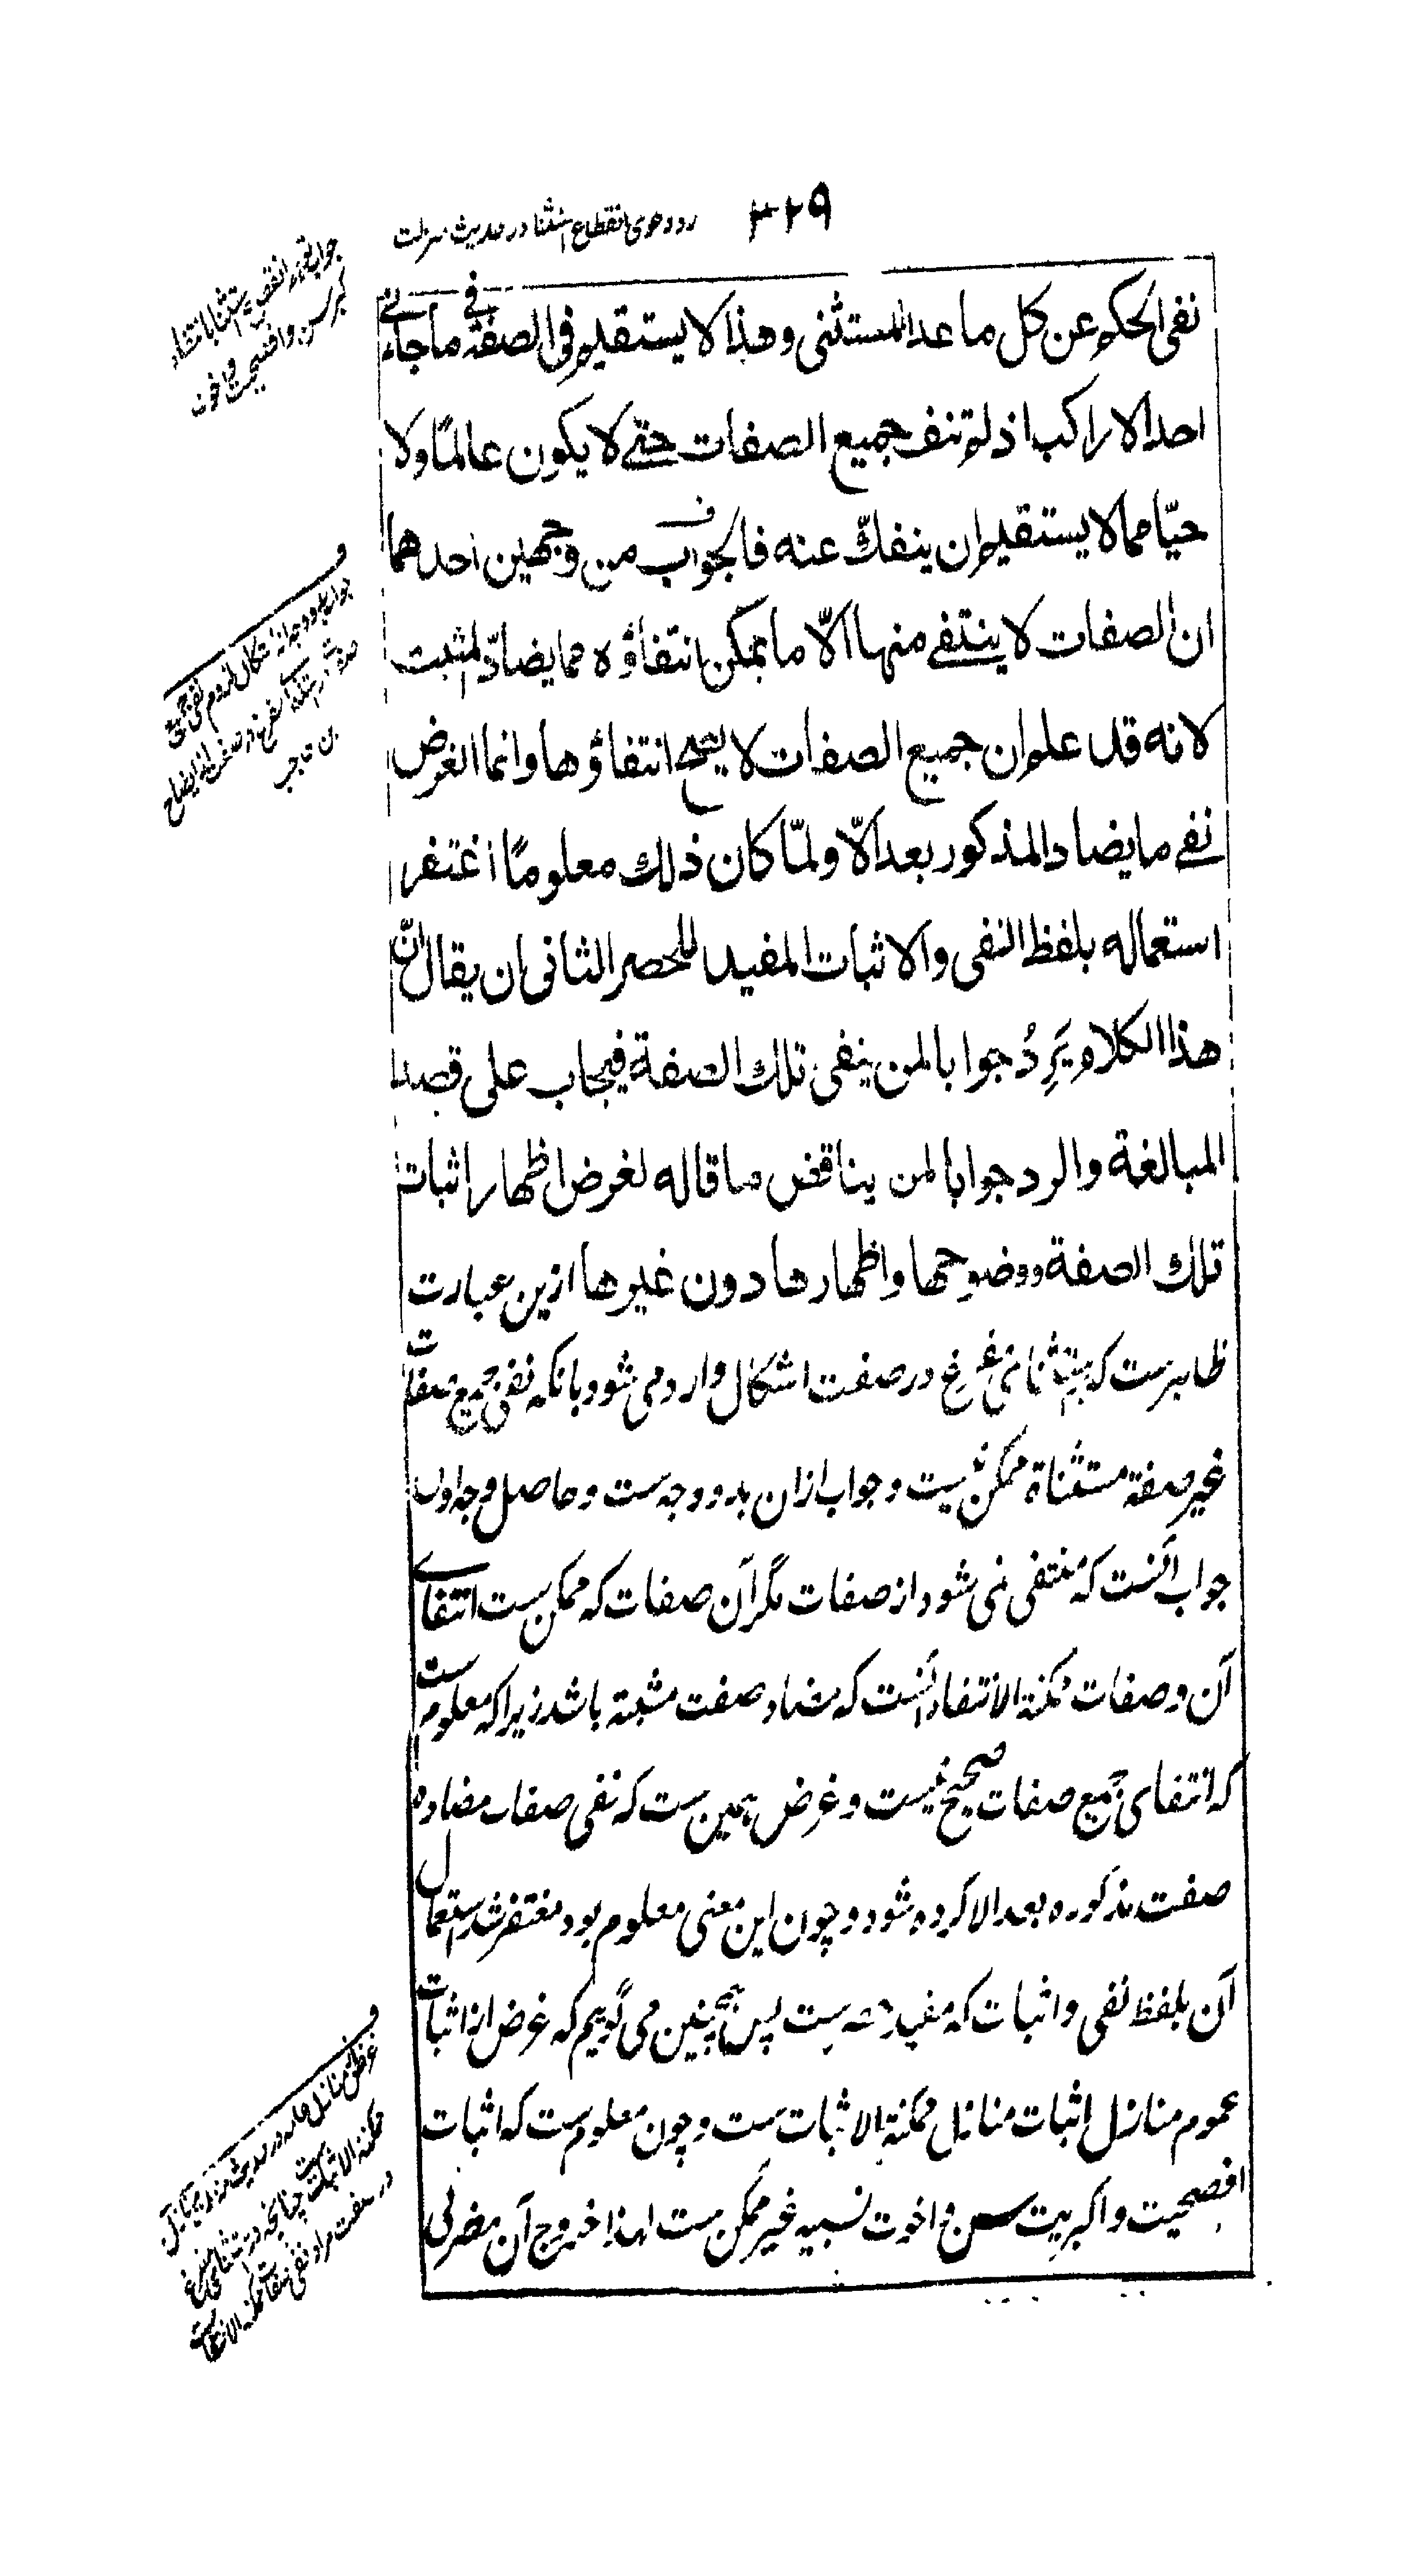 ۳۲۹
رد دعوی انقطاع استثنا در حدیث منزلت
نفی الحکم عن کل ما عدا المستثنی وهذا لا یستقیم فی الصفة فی ما جاءنی
احد الا راکب اذ لم تنف جمیع الصفات حتی لا یکون عالمًا ولا
حیّا مما لا یستقیم ان ینفکّ عنه فالجواب من وجهین احدهما
ان الصفات لا ینتفی منها الّا ما یمکن انتفاؤه مما یضادّ المثبت
لانه قد علم ان جمیع الصفات لا یصح انتفاؤها وانما الغرض
نفی ما یضاد المذکور بعد الّا ولمّا کان ذلک معلومًا اغتفر
استعماله بلفظ النفی والاثبات المفید للحصر الثانی ان یقال انّ
هذا الکلام یَرِدُ جوابا لمن ینفی تلک الصفة فیجاب علی قصد
المبالغة والرد جوابا لمن یناقض ما قاله لغرض اظهار اثبات
تلک الصفة ووضوحها واظهارها دون غیرها ازین عبارت
ظاهرست که بر استثنای مفرغ در صفت اشکال وارد می شود بانکه نفی جمیع صفات
غیر صفة مستثناة ممکن نیست و جواب ازان بدو وجه ست و حاصل وجه اول
جواب آنست که منتفی نمی شود از صفات مگر آن صفات که ممکن ست انتفای
آن و صفات ممکنة الانتفاء آنست که مضاد صفت مثبتة باشد زیرا که معلوم ست
که انتفای جمیع صفات صحیح نیست و غرض همین ست که نفی صفات مضاده
صفت مذکوره بعد الا کرده شود و چون این معنی معلوم بود مغتفر شد استعمال
آن بلفظ نفی و اثبات که مفید حصر ست پس همچنین می گوییم که غرض از اثبات
عموم منازل اثبات منازل ممکنة الاثبات ست و چون معلوم ست که اثبات
افصحیت و اکبریت سن و اخوت نسبیه غیر ممکن ست لهذا خروج آن مضر لی